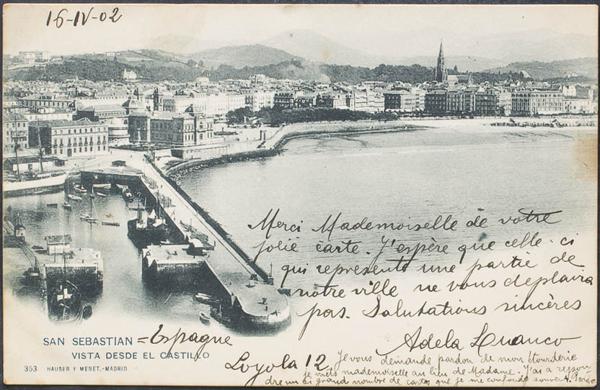 16-IV-02
Merci Mademoiselle de votre
jolie carte. J'espère que celle-ci
qui représente une partie de
notre ville ne vous deplaira
pas. Salutations sincères
SAN SEBASTIAN = Espagne
VISTA DESDE EL CASTILLO
353 HAUSER Y MENET.-MADRID
Adela
Loyola 12
Je vous demande pardon de mon étourderie
je mets mademoiselle au lieu de Madame. J'ai a
grand nombre de cartes que je me